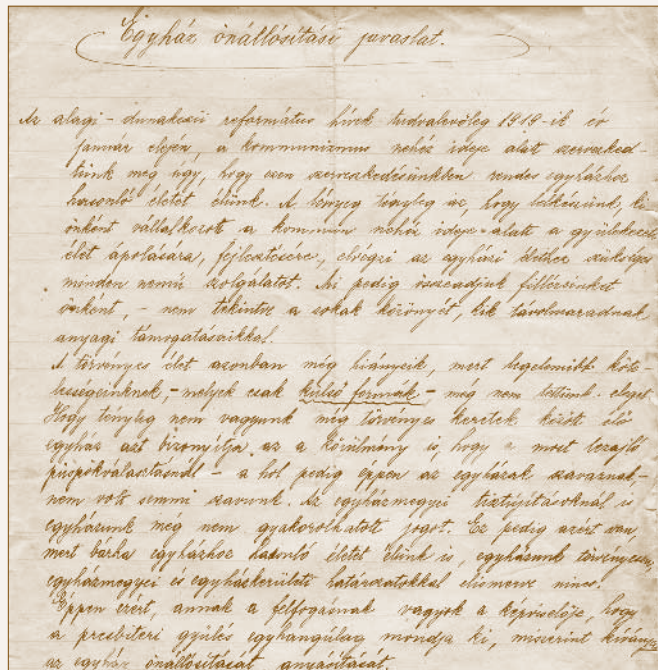 Egyház önállósítási javaslat.
Az alagi - dunakeszi református hívek tudvalevőleg 1919-ik év
január elején, a kommunizmus nehéz ideje alatt szervezked-
tünk meg úgy, hogy ezen szervezkedésünkben rendes egyházhoz
hasonló életet élünk. A lényeg tényleg az, hogy lelkészünk ki
önként vállalkozott a kommun nehéz ideje alatt a gyülekezeti
élet ápolására, fejlesztésére, elvégzi az egyházi élethez szükséges
minden nemű szolgálatot. Mi pedig összeadjuk filléreinket
önként, - nem tekintve a sokak közönyét, kik távolmaradnak
anyagi támogatásaikkal.
A törvényes élet azonban még hiányzik, mert legelemibb köte-
lességeinknek, - melyek csak külső formák - még nem tettünk eleget
Hogy tényleg nem vagyunk még törvényes keretek között élő
egyház azt bizonyítja az a körülmény is, hogy a most lezajló
püspökválasztásnál - a hol pedig éppen az egyházak szavaznak -
nem volt semmi szavunk. Az egyházmegyei tisztújításoknál is
egyházunk még nem gyakorolhatott jogot. Ez pedig azért van,
mert bárha egyházhoz hasonló életet élünk is, egyházunk törvényesen,
egyházmegyei és egyházkerületi határozatokkal elismerve nincs.
Éppen ezért, annak a felfogásnak vagyok a képviselője, hogy
a presbiteri gyűlés egyhangúlag mondja ki, miszerint kívánja
az egyház önállósítását